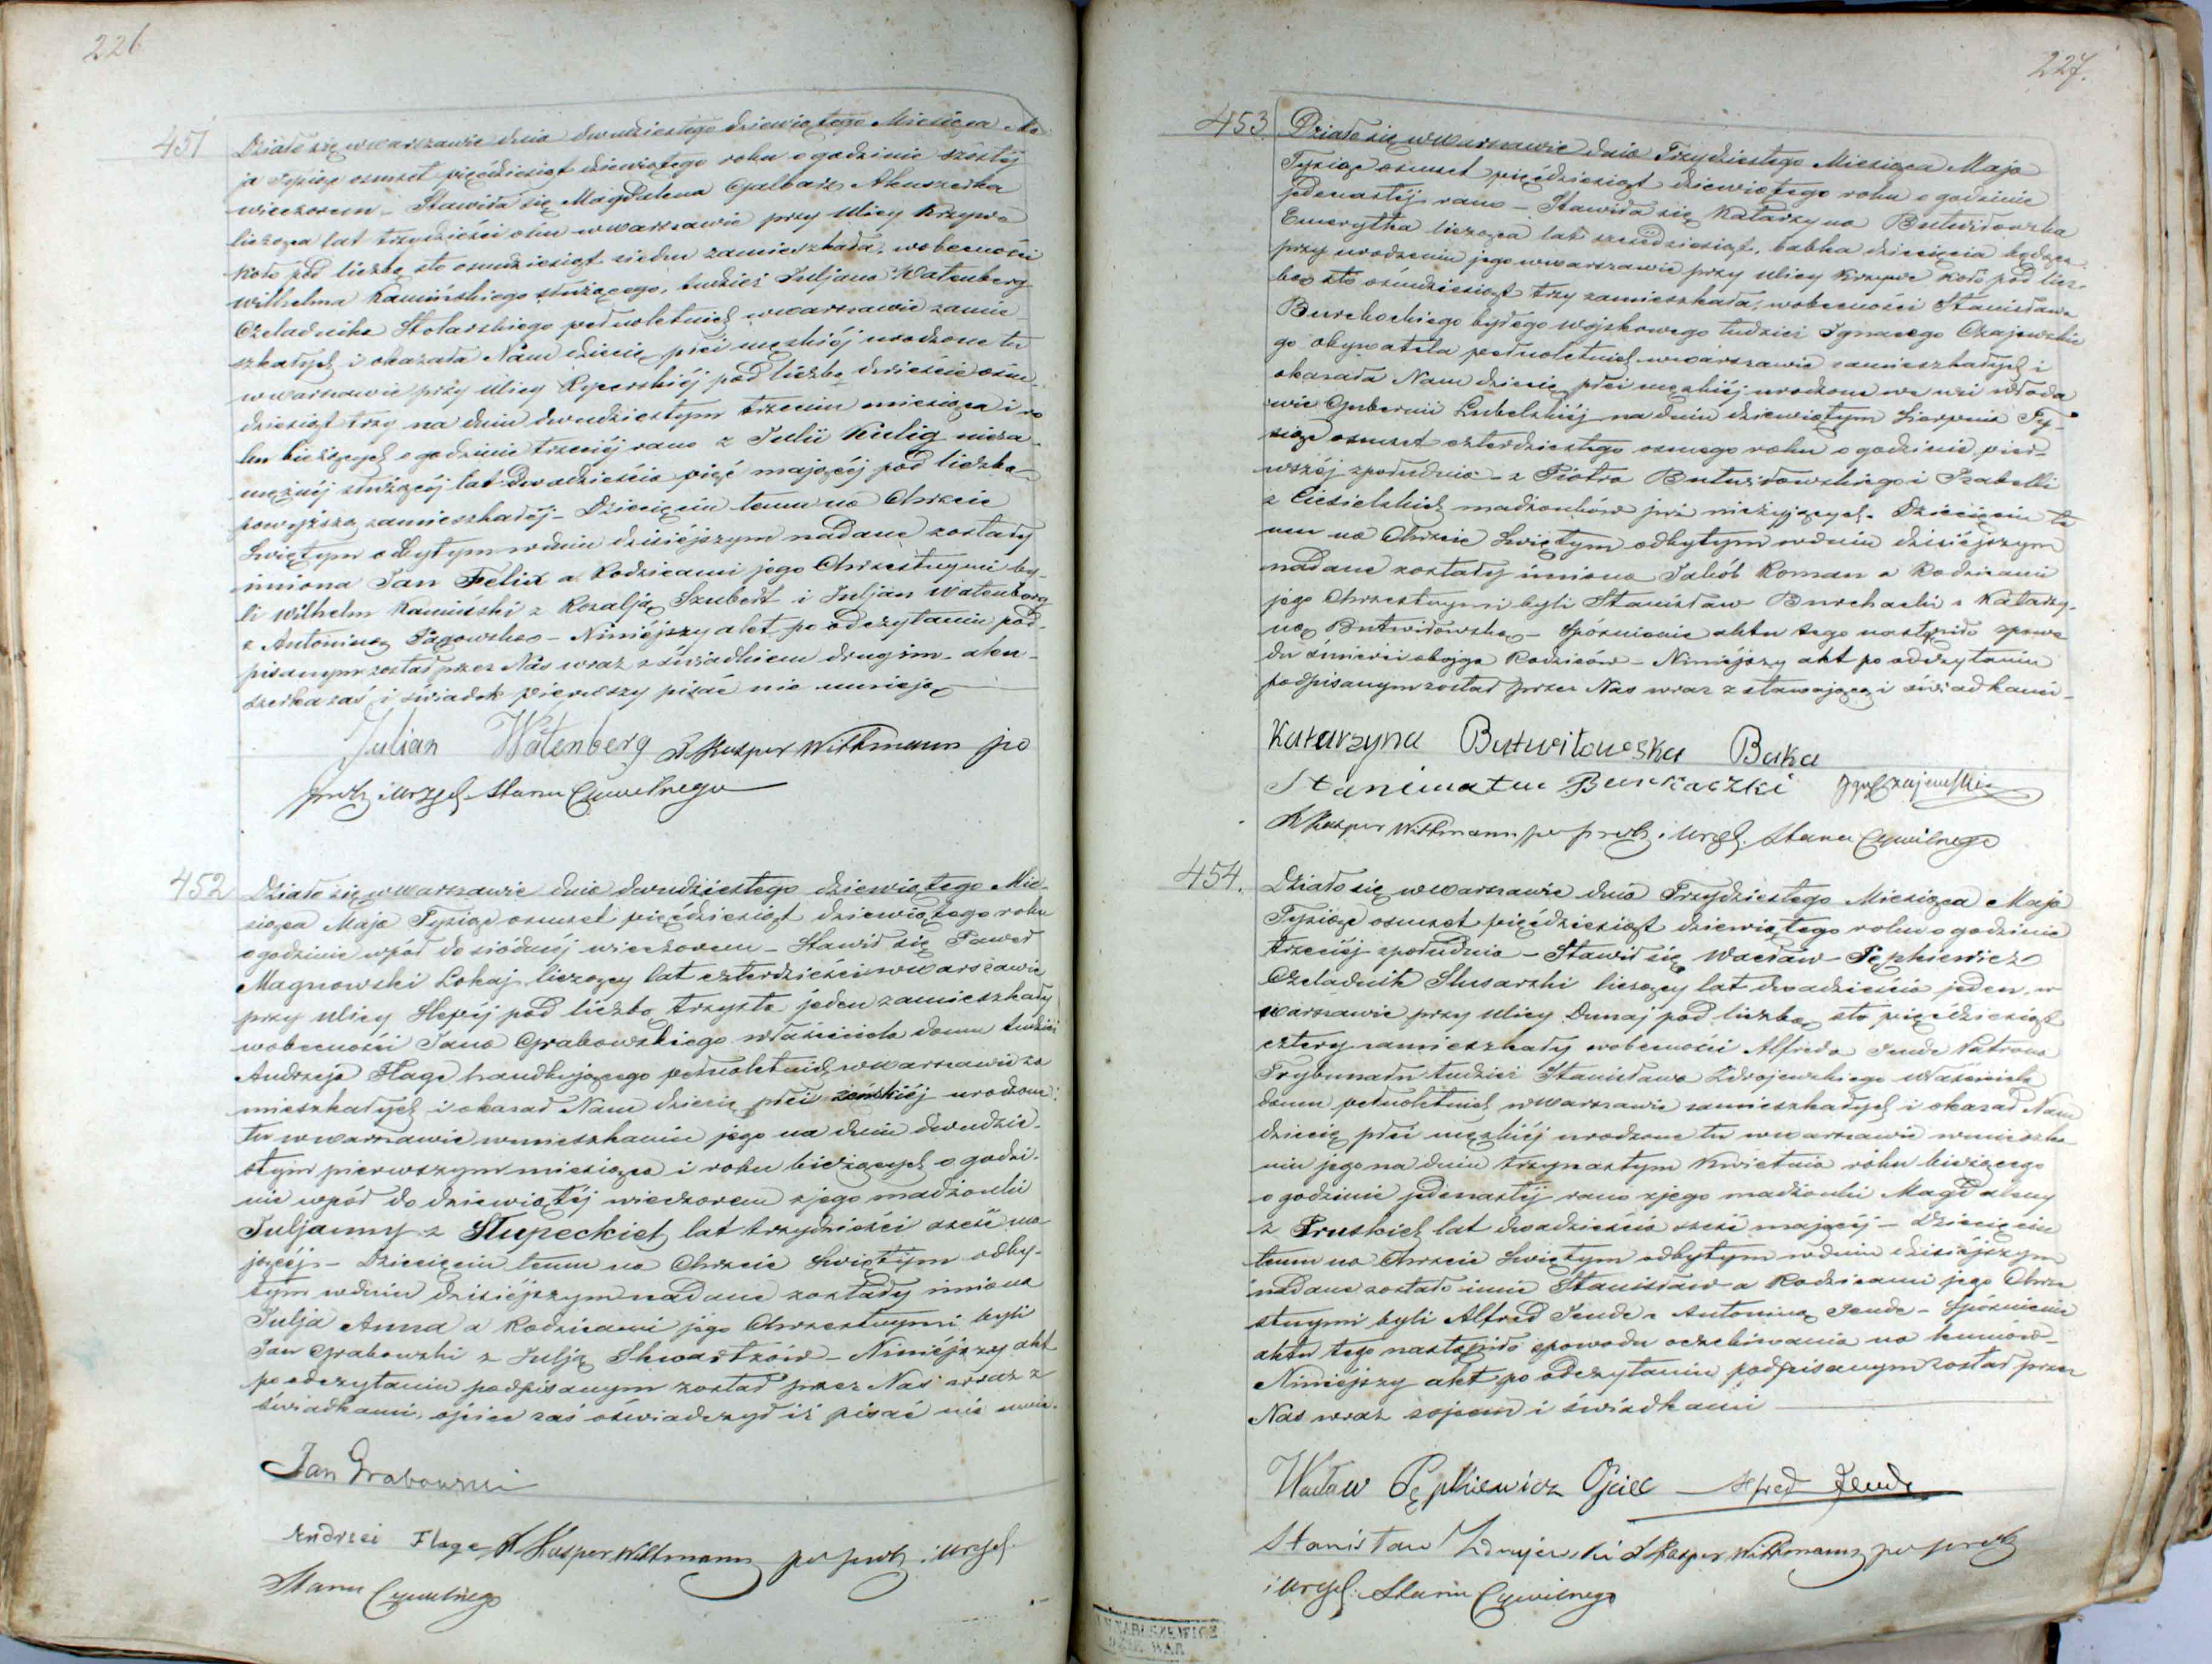 226
451
Działo się w Warszawie dnia dwudziestego dziewiątego Miesiąca Ma-
ja Tysiąc osmset pięćdziesiąt dziewiątego roku o godzinie szóstej
wieczorem – Stawiła się Magdalena Galbarz Akuszerka
licząca lat trzydzieści ośm w Warszawie przy Ulicy Krzywe
Koło pod liczbą sto osmdziesiąt siedm zamieszkała, w obecności
Wilhelma Kamińskiego służącego, tudzież Juljana Watenberg
Czeladnika Stolarskiego pełnoletnich w Warszawie zamie-
szkałych i okazała Nam dziecię płci męzkiéj urodzone tu
w Warszawie przy Ulicy Rycerskiéj pod liczbą dwieście ośm-
dziesiąt trzy na dniu dwudziestym trzecim miesiąca i ro
ku bieżących o godzinie trzeciéj rano z Julii Kulig nieza-
mężnéj służącéj lat dwadzieścia pięć mającéj pod liczbą
powyższą zamieszkałéj – Dziecięciu temu na Chrzcie
Świętym odbytym w dniu dzisiéjszym nadane zostały
imiona Jan Felix a Rodzicami jego Chrzestnymi by-
li Wilhelm Kamiński z Rozalją Szubert i Juljan Watenberg
z Antoniną Pągowską – Niniéjszy akt po odczytaniu pod-
pisanym został przez Nas wraz z świadkiem drugim – aku-
szerka zaś i świadek pierwszy pisać nie umieją
Julian Watenberg X Kasper Wittmann po
prob i Urzęd. Stanu Cywilnego
452
Działo się w Warszawie dnia dwudziestego dziewiątego Mie-
siąca Maja Tysiąc osmset pięćdziesiąt dziewiątego roku
o godzinie wpół do siódméj wieczorem – Stawił się Paweł
Magnowski Lokaj liczący lat czterdzieści w Warszawie
przy Ulicy pod liczbą trzysta jeden zamieszkały
w obecności Jana Grabowskiego właściciela domu tudzież
Andrzeja Flage handlującego pełnoletnich w Warszawie za
mieszkałych i okazał Nam dziecię płci żeńskiéj urodzone
tu w Warszawie w mieszkaniu jego na dniu dwudzie-
stym pierwszym miesiąca i roku bieżących o godzi-
nie wpół do dziewiątéj wieczorem z jego małżonki
Juljanny z Słupeckich lat trzydzieści sześć ma
jącéj – Dziecięciu temu na Chrzcie Świętym odby-
tym w dniu dzisiéjszym nadane zostały imiona
Julja Anna a Rodzicami jego Chrzestnymi byli
Jan Grabowski z Julją Shwartzów – Niniéjszy akt
po odczytaniu podpisanym został przez Nas wraz z
świadkami, ojciec zaś oświadczył iż pisać nie umie.
Jan Grabowski
Andrzei Flage X Kasper Wittmann po prob i Urzęd.
Stanu Cywilnego
227.
453
Działo się w Warszawie dnia Trzydziestego Miesiąca Maja
Tysiąc osmset pięćdziesiąt dziewiątego roku o godzinie
jedenastéj rano – Stawiła się Katarzyna Butwiłowska
Emerytka licząca lat sześćdziesiąt, babka dziecięcia będąca
przy urodzeniu jego w Warszawie przy Ulicy Krzywe Koło pod licz-
bą sto ośmdziesiąt trzy zamieszkała, w obecności Stanisława
Burchackiego byłego wojskowego tudzież Ignacego Czajewskie
go obywatela pełnoletnich w Warszawie zamieszkałych i
okazała Nam dziecię płci męzkiéj urodzone we wsi Włoda
wie Gubernii Lubelskiéj na dniu dziewiątym Sierpnia Ty-
siąc osmset czterdziestego osmego roku o godzinie pier-
wszéj z południa – z Piotra Butwiłowskiego i Izabelli
z Ciesielskich małżonków już nieżyjących. Dziecięciu te
mu na Chrzcie Świętym odbytym w dniu dzisiéjszym
nadane zostały imiona Jakób Roman a Rodzicami
jego Chrzestnymi byli Stanisław Burchacki z Katarzy-
ną Butwiłowską – Spóźnienie aktu tego nastąpiło z powo
du śmierci obojga Rodziców – Niniéjszy akt po odczytaniu
podpisanym został przez Nas wraz z stawającą i świadkami –
Katarzyna Butwiłoweska Baka
Burkaczki Ign Czajewski
X Kasper Wittmann po prob i Urzęd. Stanu Cywilnego
454.
Działo się w Warszawie dnia Trzydziestego Miesiąca Maja
Tysiąc osmset pięćdziesiąt dziewiątego roku o godzinie
trzeciéj z południa – Stawił się Wacław Pępkiewicz
Czeladnik Ślusarski liczący lat dwadzieścia jeden, w
Warszawie przy Ulicy Dunaj pod liczbą sto pięćdziesiąt
cztery zamieszkały w obecności Alfreda Jende Patrona
Trybunału tudzież Stanisława Zdrojewskiego Właściciela
domu pełnoletnich w Warszawie zamieszkałych i okazał Nam
dziecię płci męzkiéj urodzone tu w Warszawie w mieszka-
niu jego na dniu trzynastym Kwietnia roku bieżącego
o godzinie jedenastéj rano z jego małżonki Magdaleny
z Pruskich lat dwadzieścia sześć mającéj – Dziecięciu
temu na Chrzcie Świętym odbytym w dniu dzisiéjszym
nadane zostało imie Stanisław a Rodzicami jego Chrze
stnymi byli Alfred Jende z Antoniną Jende – Spóźnienie
aktu tego nastąpiło z powodu oczekiwania na kumów –
Niniejszy akt po odczytaniu podpisanym został przez
Nas wraz z ojcem i świadkami
Wacław Pępkiewicz Ojciec – Alfred Jende
Stanisław Zdrojewski X Kasper Wittmann po prob
i Urzęd. Stanu Cywilnego